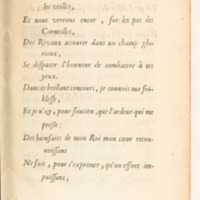 les veilles,
Et nous verrons encor, sur les pas des
Corneilles,
Des Rivaux accourir dans un champ glo-
rieux,
Se disputer l'honneur de combattre à tes
yeux.
Dans ce brillant concours, je connois ma foi-
blesse,
Et je n'ay, pour soutien, que l'ardeur qui me
presse:
Des bienfaits de mon Roi mon cœur recon-
noissant
Ne fait, pour s'exprimer, qu'un effort im-
puissant,